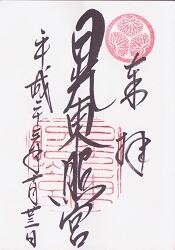 奉拝
日光東照宮
平成二十三年 月廿三日